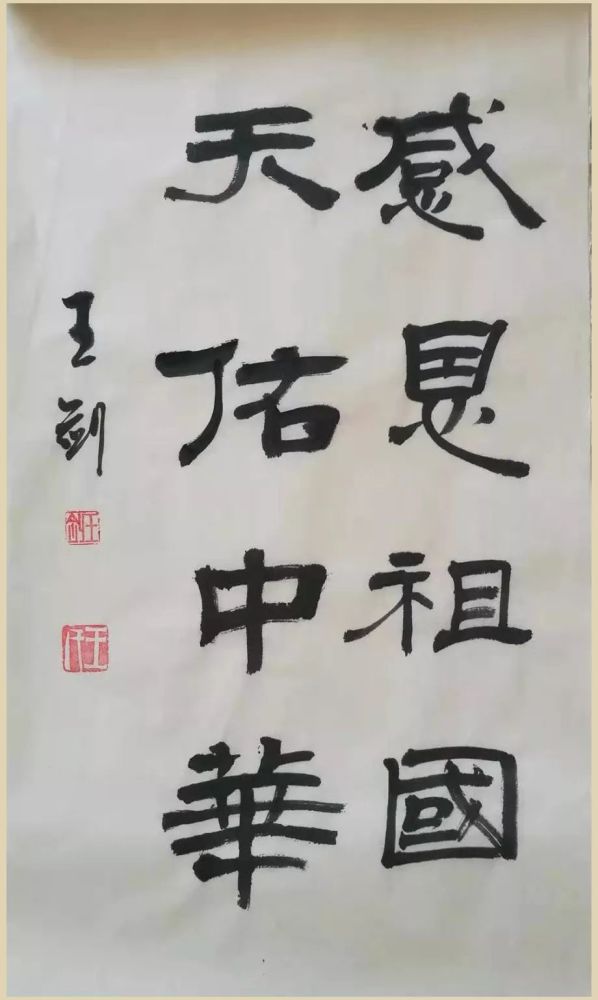 感恩祖國
天佑中華
王剑